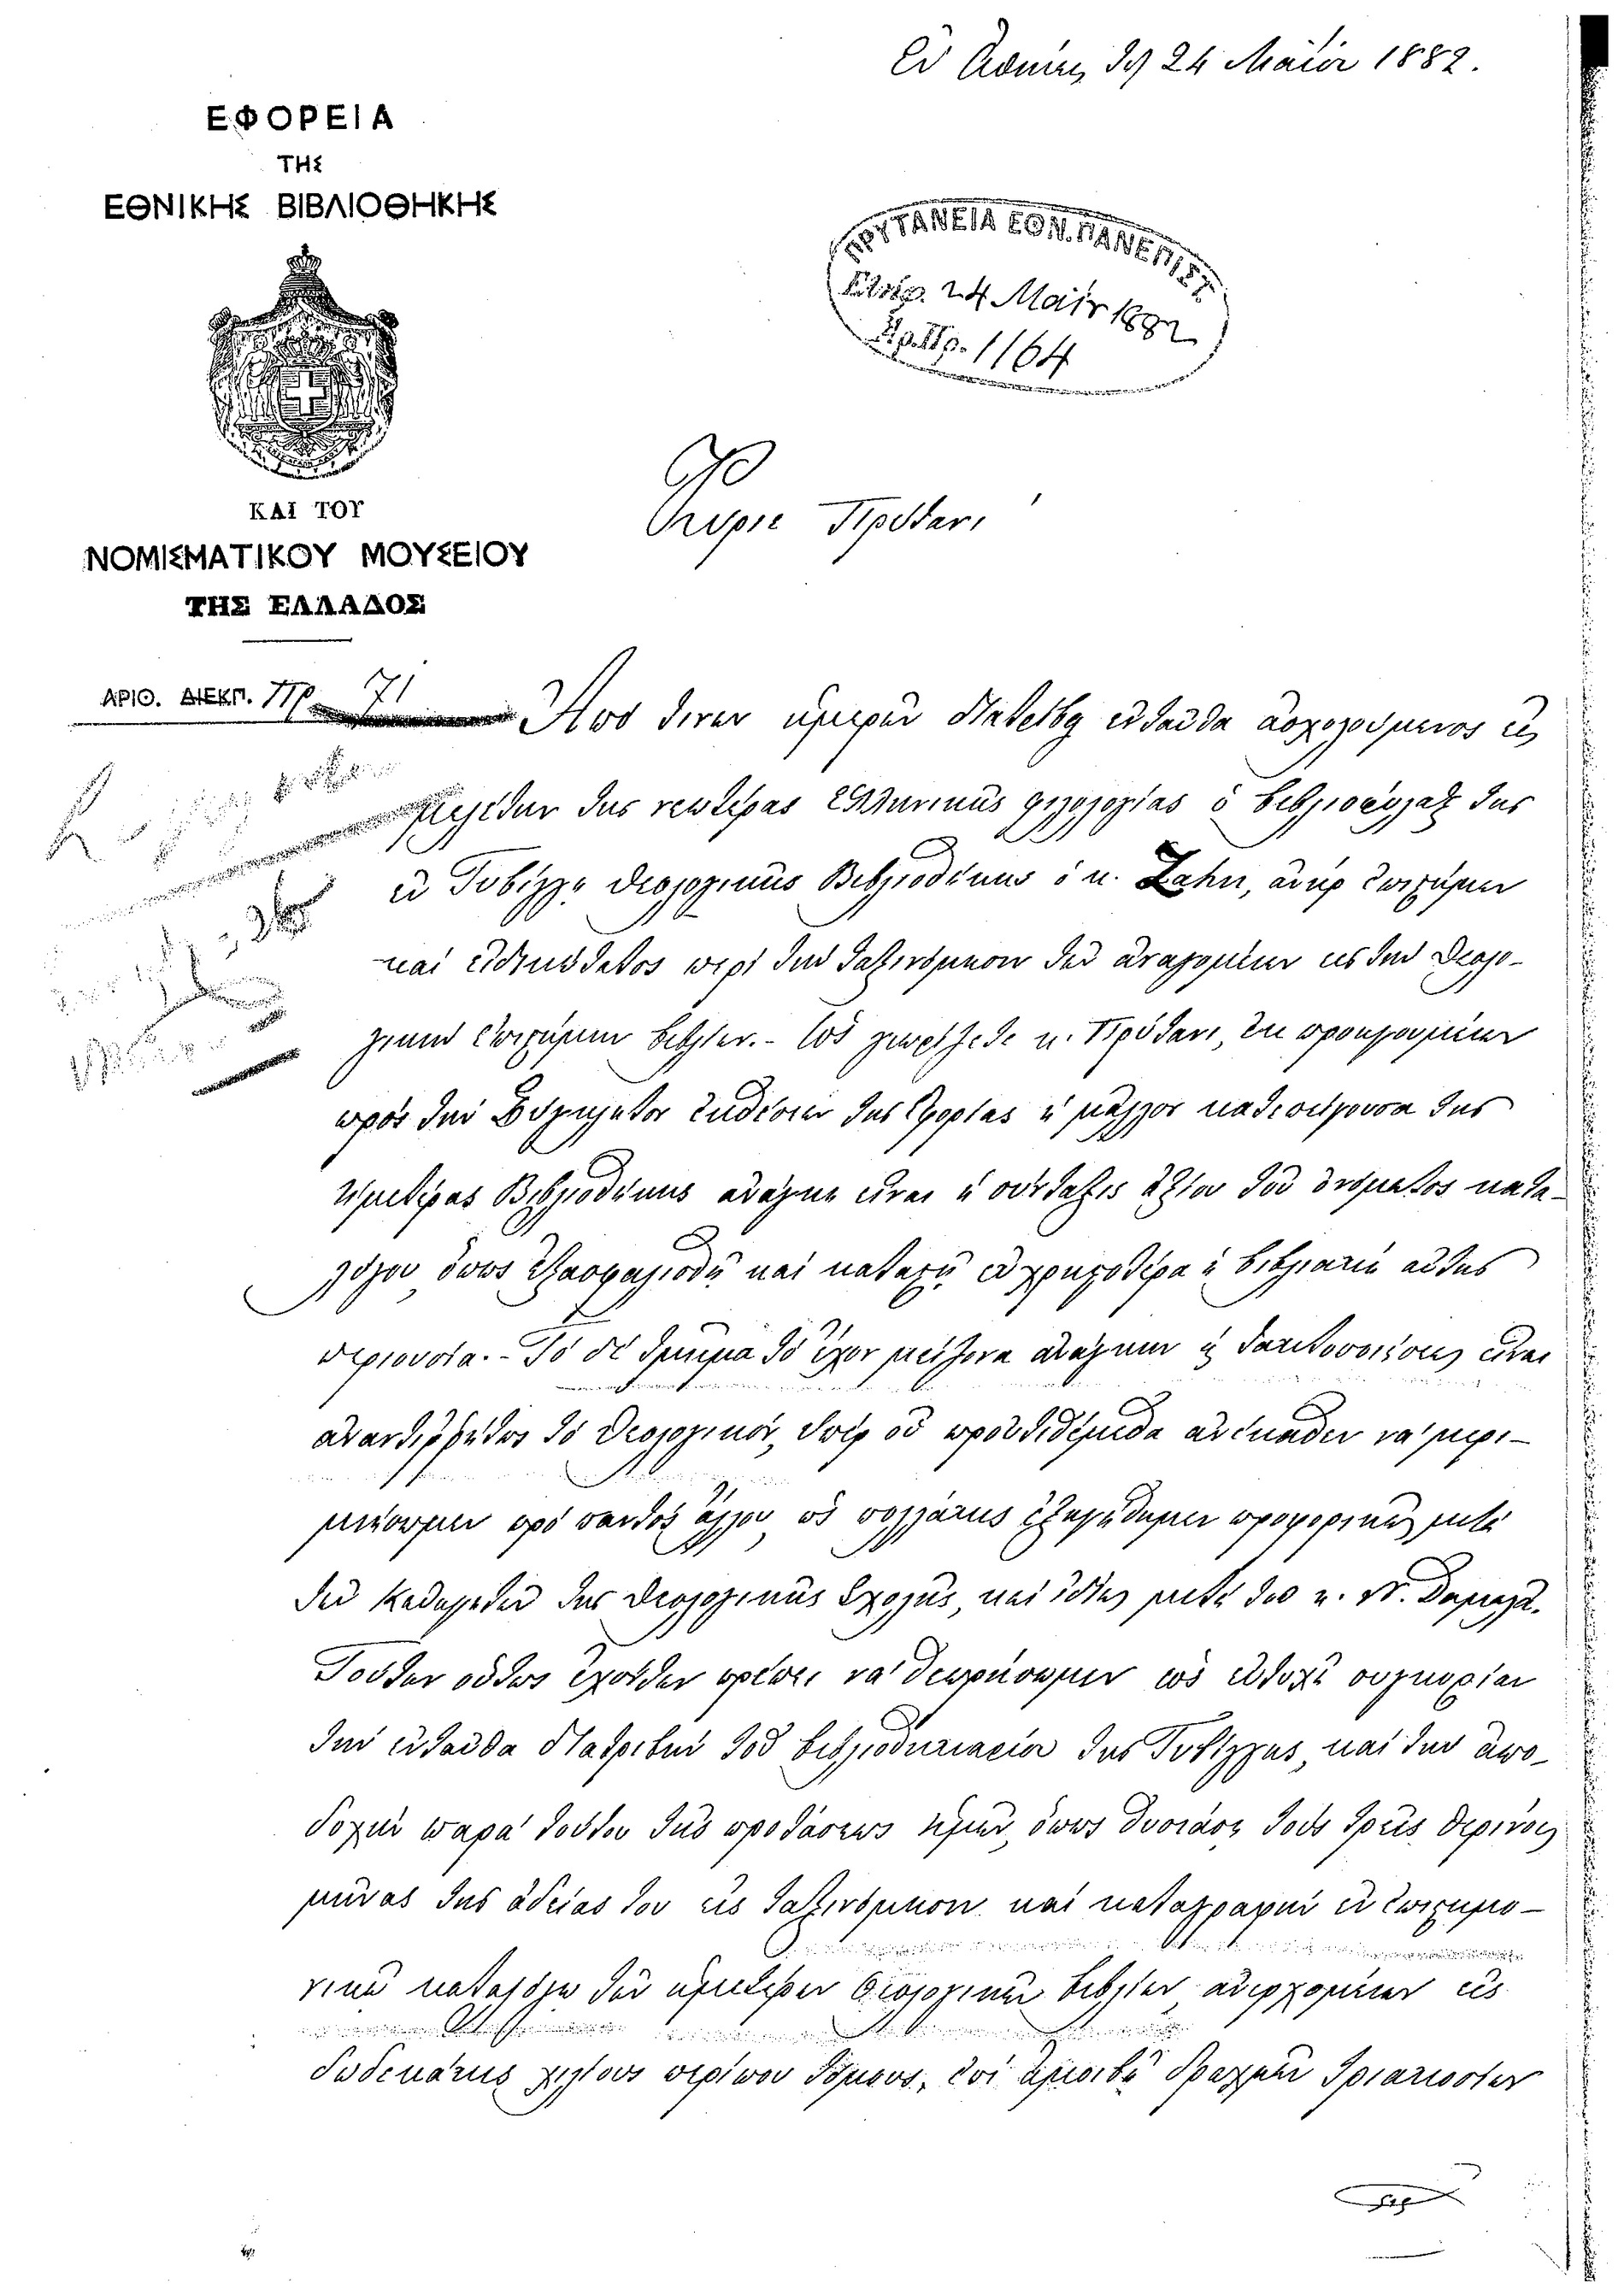 Ἐν Ἀθήναις τῇ 24 Μαΐου 1882.
ΕΦΟΡΕΙΑ
ΤΗΣ
ΕΘΝΙΚΗΣ ΒΙΒΛΙΟΘΗΚΗΣ
ΠΡΥΤΑΝΕΙΑ ΕΘΝ. ΠΑΝΕΠΙΣΤ.
24 Μαΐου 1882
Ἀρ. Πρ. 1164
ΚΑΙ ΤΟΥ
ΝΟΜΙΣΜΑΤΙΚΟΥ ΜΟΥΣΕΙΟΥ
ΤΗΣ ΕΛΛΑΔΟΣ
Κύριε Πρύτανι
ΑΡΙΘ. ΔΙΕΚΠ. Πρ. 71
Ἀπό τινων ἡμερῶν διατρίβει ἐνταῦθα ἀσχολούμενος εἰς
μελέτην τῆς νεωτέρας Ἑλληνικῆς φιλολογίας ὁ βιβλιοφύλαξ τῆς
ἐν Τυβίγγῃ Θεολογικῆς Βιβλιοθήκης ὁ κ. Zahn, ἀνὴρ ἐπιστήμων
καὶ εἰδικώτατος περὶ τὴν ταξινόμησιν τῶν ἀναγομένων εἰς τὴν Θεολο-
γικὴν ἐπιστήμην βιβλίων.- Ὡς γνωρίζετε κ. Πρύτανι, ἐκ προηγουμένων
πρὸς τὴν Σύγκλητον ἐκθέσεων τῆς Ἐφορίας ἡ μᾶλλον κατεπείγουσα τῆς
ἡμετέρας Βιβλιοθήκης ἀνάγκη εἶναι ἡ σύνταξις ἀξίου τοῦ ὀνόματος κατα-
λόγου, ὅπως ἐξασφαλισθῇ καὶ καταστῇ εὐχρηστοτέρα ἡ βιβλιακὴ αὐτῆς
περιουσία.- Τὸ δὲ τμῆμα τὸ ἔχον μείζονα ἀνάγκην τακτοποιήσεως εἶναι
ἀναντιρρήτως τὸ Θεολογικόν, ὑπὲρ οὗ προὐτιθέμεθα ἀνέκαθεν νὰ μερι-
μνήσωμεν πρὸ παντὸς ἄλλου, ὡς πολλάκις ἐξηγήθημεν προφορικῶς μετὰ
τῶν Καθηγητῶν τῆς Θεολογικῆς Σχολῆς, καὶ ἰδίως μετὰ τοῦ κ. Ν. Δαμαλᾶ.
Τούτων οὕτως ἐχόντων πρέπει νὰ θεωρήσωμεν ὡς εὐτυχῆ συγκυρίαν
τὴν ἐνταῦθα διατριβὴν τοῦ βιβλιοθηκαρίου τῆς Τυβίγγης, καὶ τὴν ἀπο-
δοχὴν παρὰ τούτου τῆς προτάσεως ἡμῶν, ὅπως θυσιάσῃ τοὺς τρεῖς θερινοὺς
μῆνας τῆς ἀδείας του εἰς ταξινόμησιν καὶ καταγραφὴν ἐν ἐπιστημο-
νικῷ καταλόγῳ τῶν ἡμετέρων Θεολογικῶν βιβλίων ἀνερχομένων εἰς
δωδεκάκις χιλίους περίπου τόμους, ἐπὶ ἀμοιβῇ δραχμῶν τριακοσίων